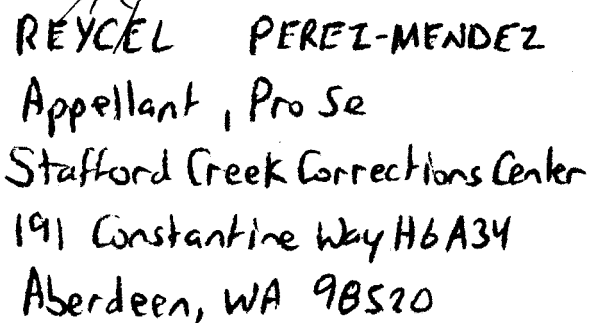 REYCEL PEREZ-MENDEZ
Appellant, Pro Se
Stafford Creek Corrections Center
191 Constantine Way H6A34
Aberdeen, WA 98520